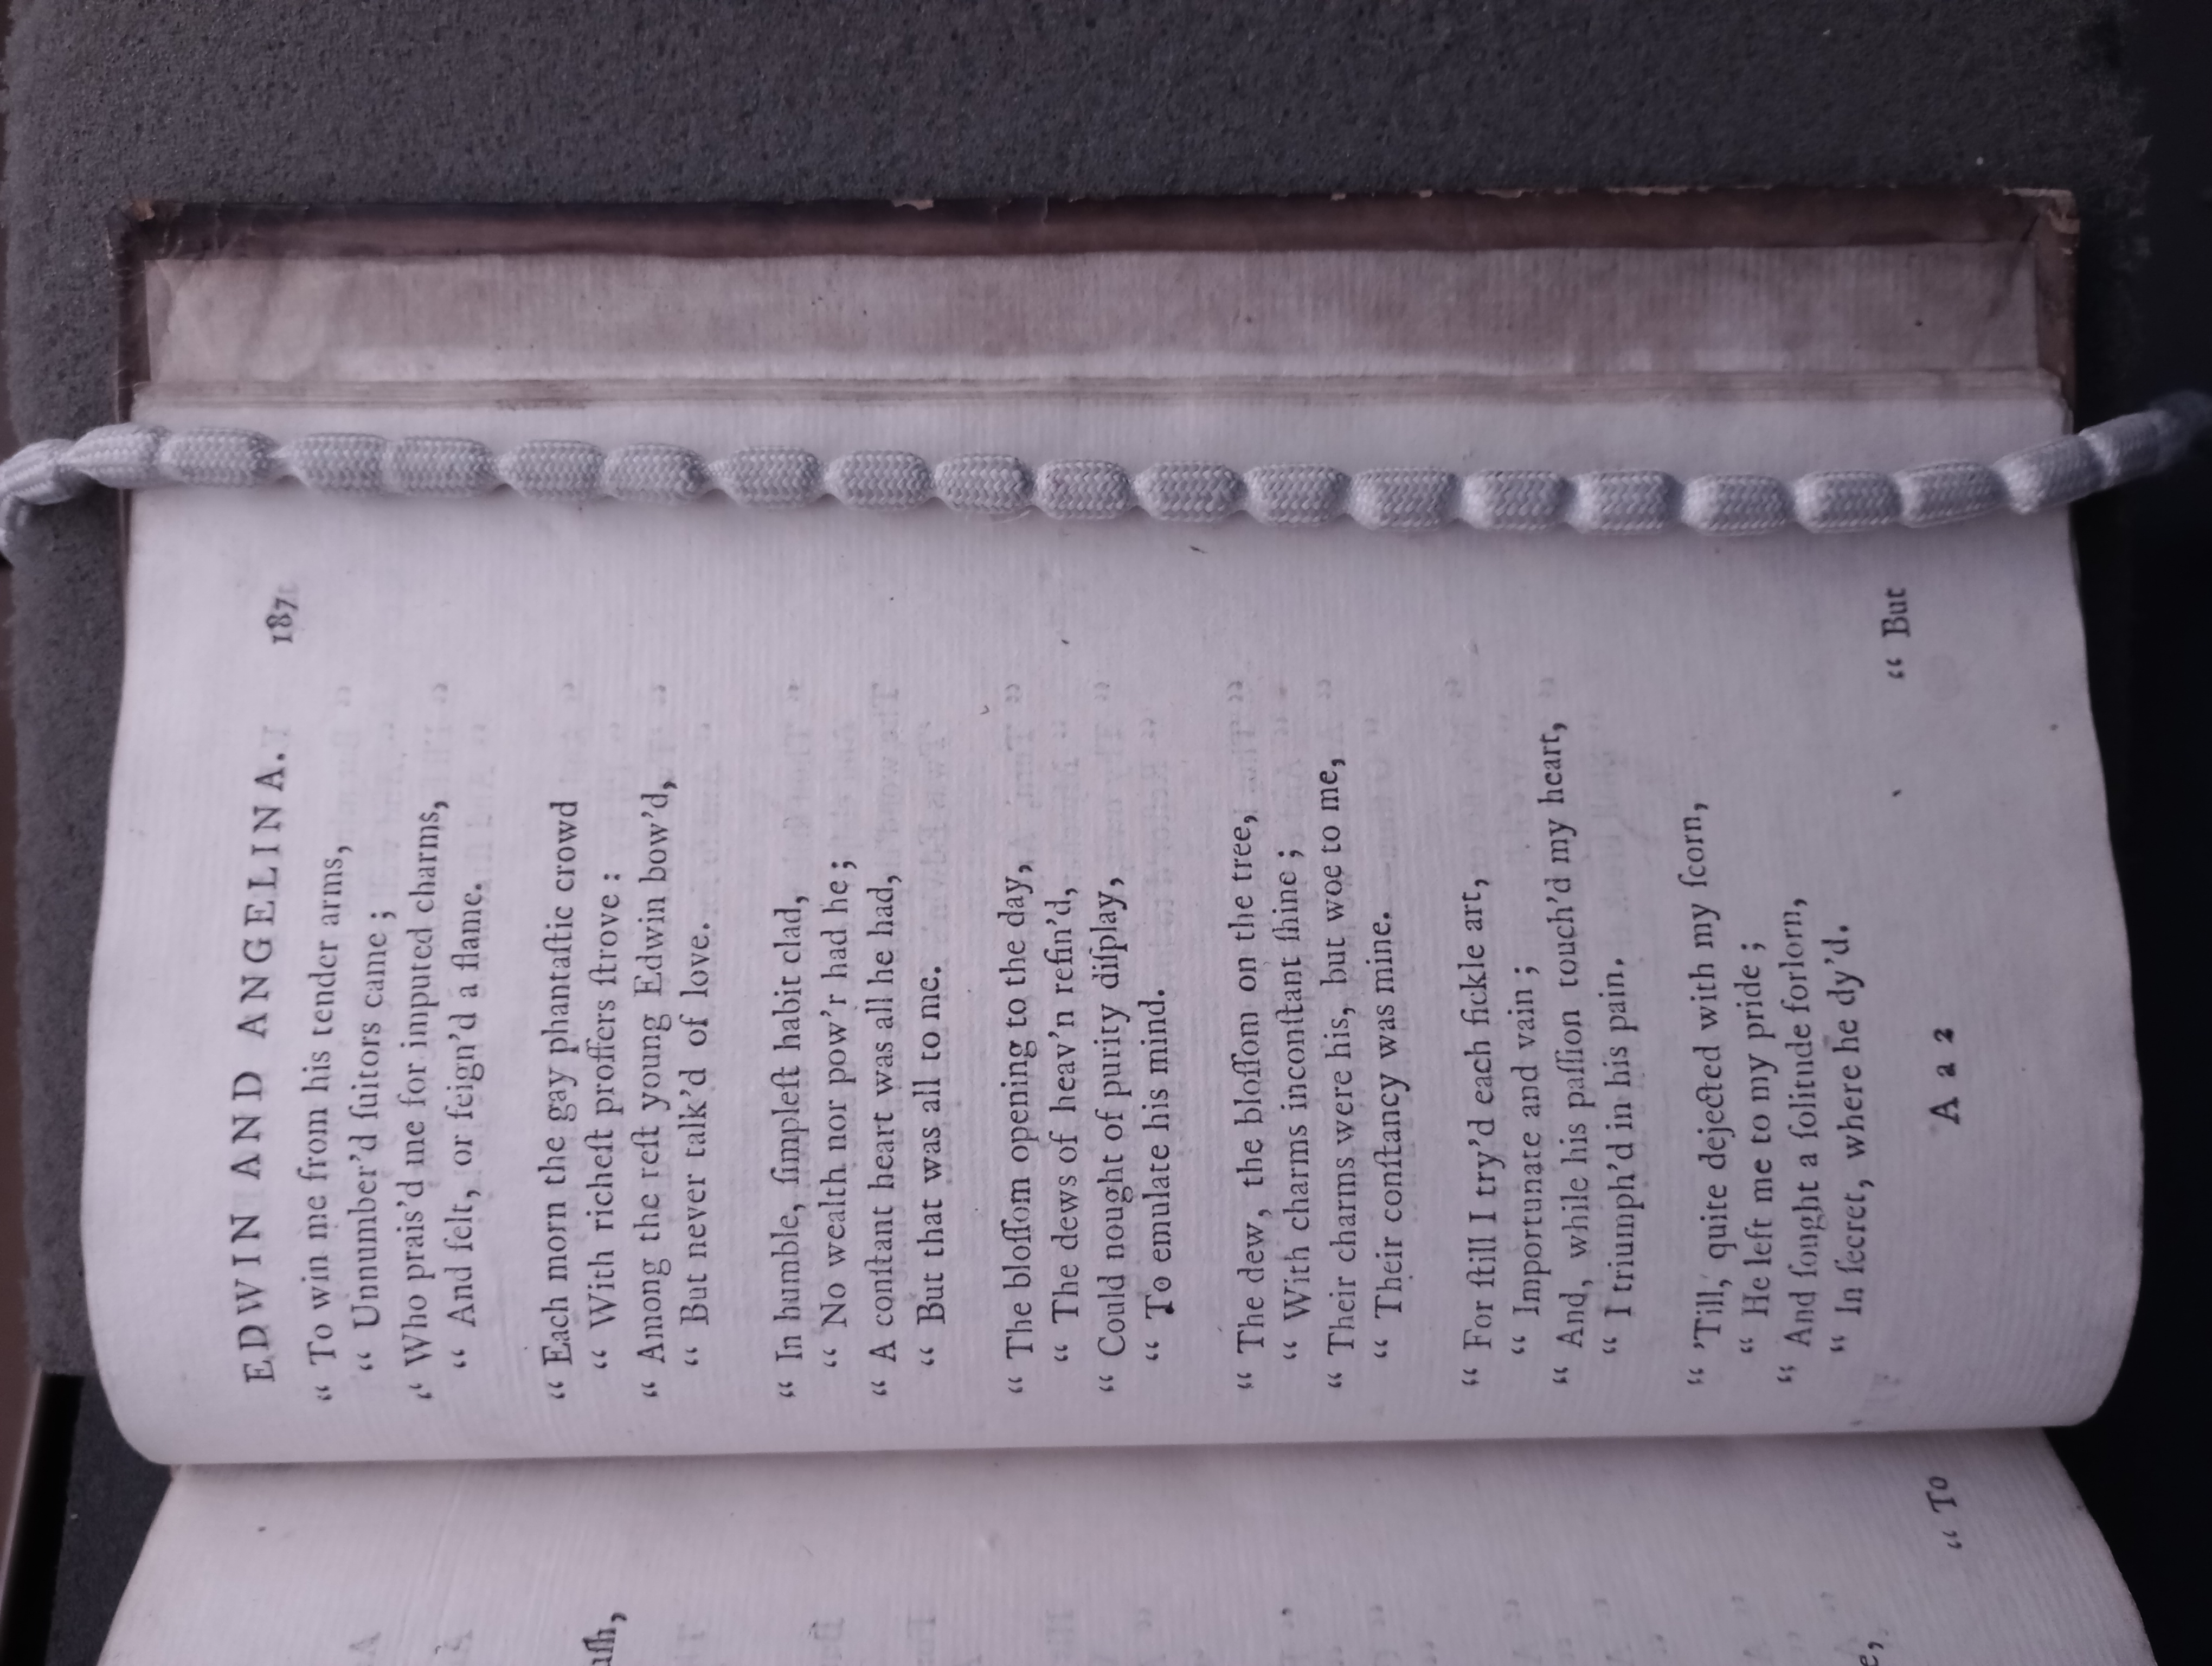 EDWIN AND ANGELINA. 187
“ To win me from his tender arms,
“ Unnumber'd ſuitors came ;
“ Who prais'd me for imputed charms,
“ And felt, or feign'd a flame.
“ Each morn the gay phantaſtic crowd
“ With richeſt proffers ſtrove :
“ Among the reſt young Edwin bow'd,
“ But never talk'd of love.
“ In humble, ſimpleſt habit clad,
“ No wealth nor pow'r had he ;
“ A conſtant heart was all he had,
“ But that was all to me.
“ The bloſſom opening to the day,
“ The dews of heav'n refin'd,
“ Could nought of purity diſplay,
“ To emulate his mind.
“ The dew, the bloſſom on the tree,
“ With charms inconſtant ſhine ;
“ Their charms were his, but woe to me,
“ Their conſtancy was mine.
“ For ſtill I try'd each fickle art,
“ Importunate and vain ;
“ And, while his paſſion touch'd my heart,
“ I triumph'd in his pain.
“ 'Till, quite dejected with my ſcorn,
“ He left me to my pride ;
“ And ſought a ſolitude forlorn,
“ In ſecret, where he dy'd.
A a 2 “ But
“ To